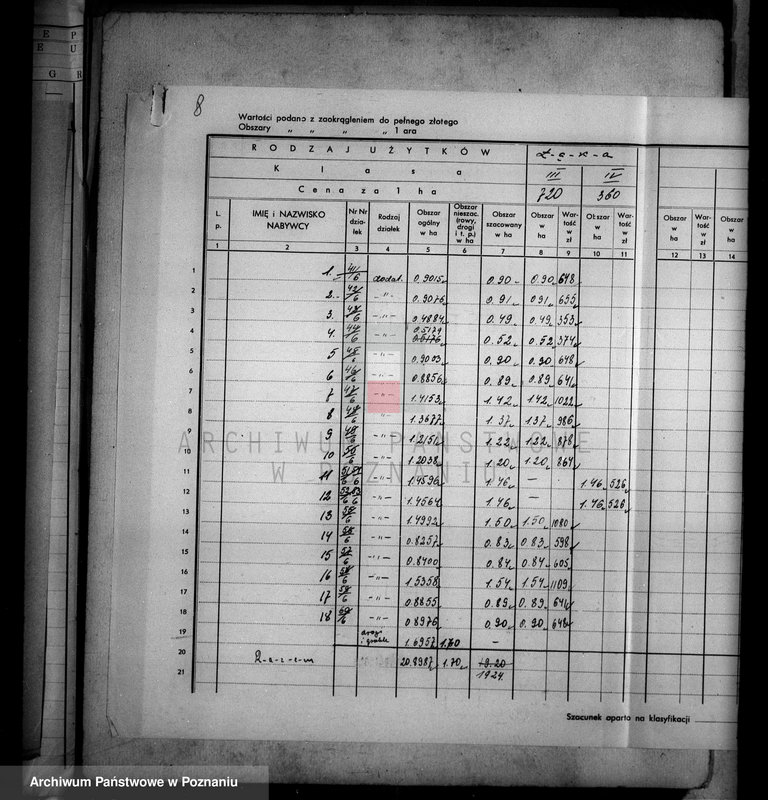 8
Wartości podano z zaokrągleniem do pełnego złotego
Obszary „ „ „ „ 1 ara
RODZAJ UŻYTKÓW Ł-ą-k-a
Klasa III IV
Cena za 1 ha 720 360
L. p. IMIĘ i NAZWISKO NABYWCY Nr Nr działek Rodzaj działek Obszar ogólny w ha Obszar nieszac. (rowy, drogi i t. p.) w ha Obszar szacowany w ha Obszar w ha Wartość w zł Obszar w ha Wartość w zł Obszar w ha Wartość w zł Obszar w ha
1 2 3 4 5 6 7 8 9 10 11 12 13 14
1 1. 41/6 dodat. 0.9015 0.90 0.90 648
2 2. 42/6 -"- 0.9076 0.91 0.91 655
3 3. 43/6 -"- 0.4884 0.49 0.49 353
4 4. 44/6 -"- 0.5179 0.52 0.52 374
5 5 45/6 -"- 0.9003 0.90 0.90 648
6 6 46/6 -"- 0.8856 0.89 0.89 641
7 7 47/6 -"- 1.4153 1.42 1.42 1022
8 8 48/6 -"- 1.3677 1.37 1.37 986
9 9 49/6 -"- 1.2151 1.22 1.22 878
10 10 50/6 -"- 1.2038 1.20 1.20 864
11 11 -"- 1.4596 1.46 — 1.46 526
12 12 -"- 1.4564 1.46 — 1.46 526
13 13 -"- 1.4992 1.50 1.50 1080
14 14 -"- 0.8257 0.83 0.83 598
15 15 57/6 -"- 0.8400 0.84 0.84 605
16 16 58/6 -"- 1.5358 1.54 1.54 1109
17 17 -"- 0.8855 0.89 0.89 641
18 18 60/6 -"- 0.8976 0.90 0.90 648
19 drogi i groble 1.6957 1.70 —
20 R-a-z-e-m 20.8987 1.70 19.20
21 1924
Szacunek oparto na klasyfikacji
ARCHIWUM PAŃSTWOWE
W POZNANIU
Archiwum Państwowe w Poznaniu